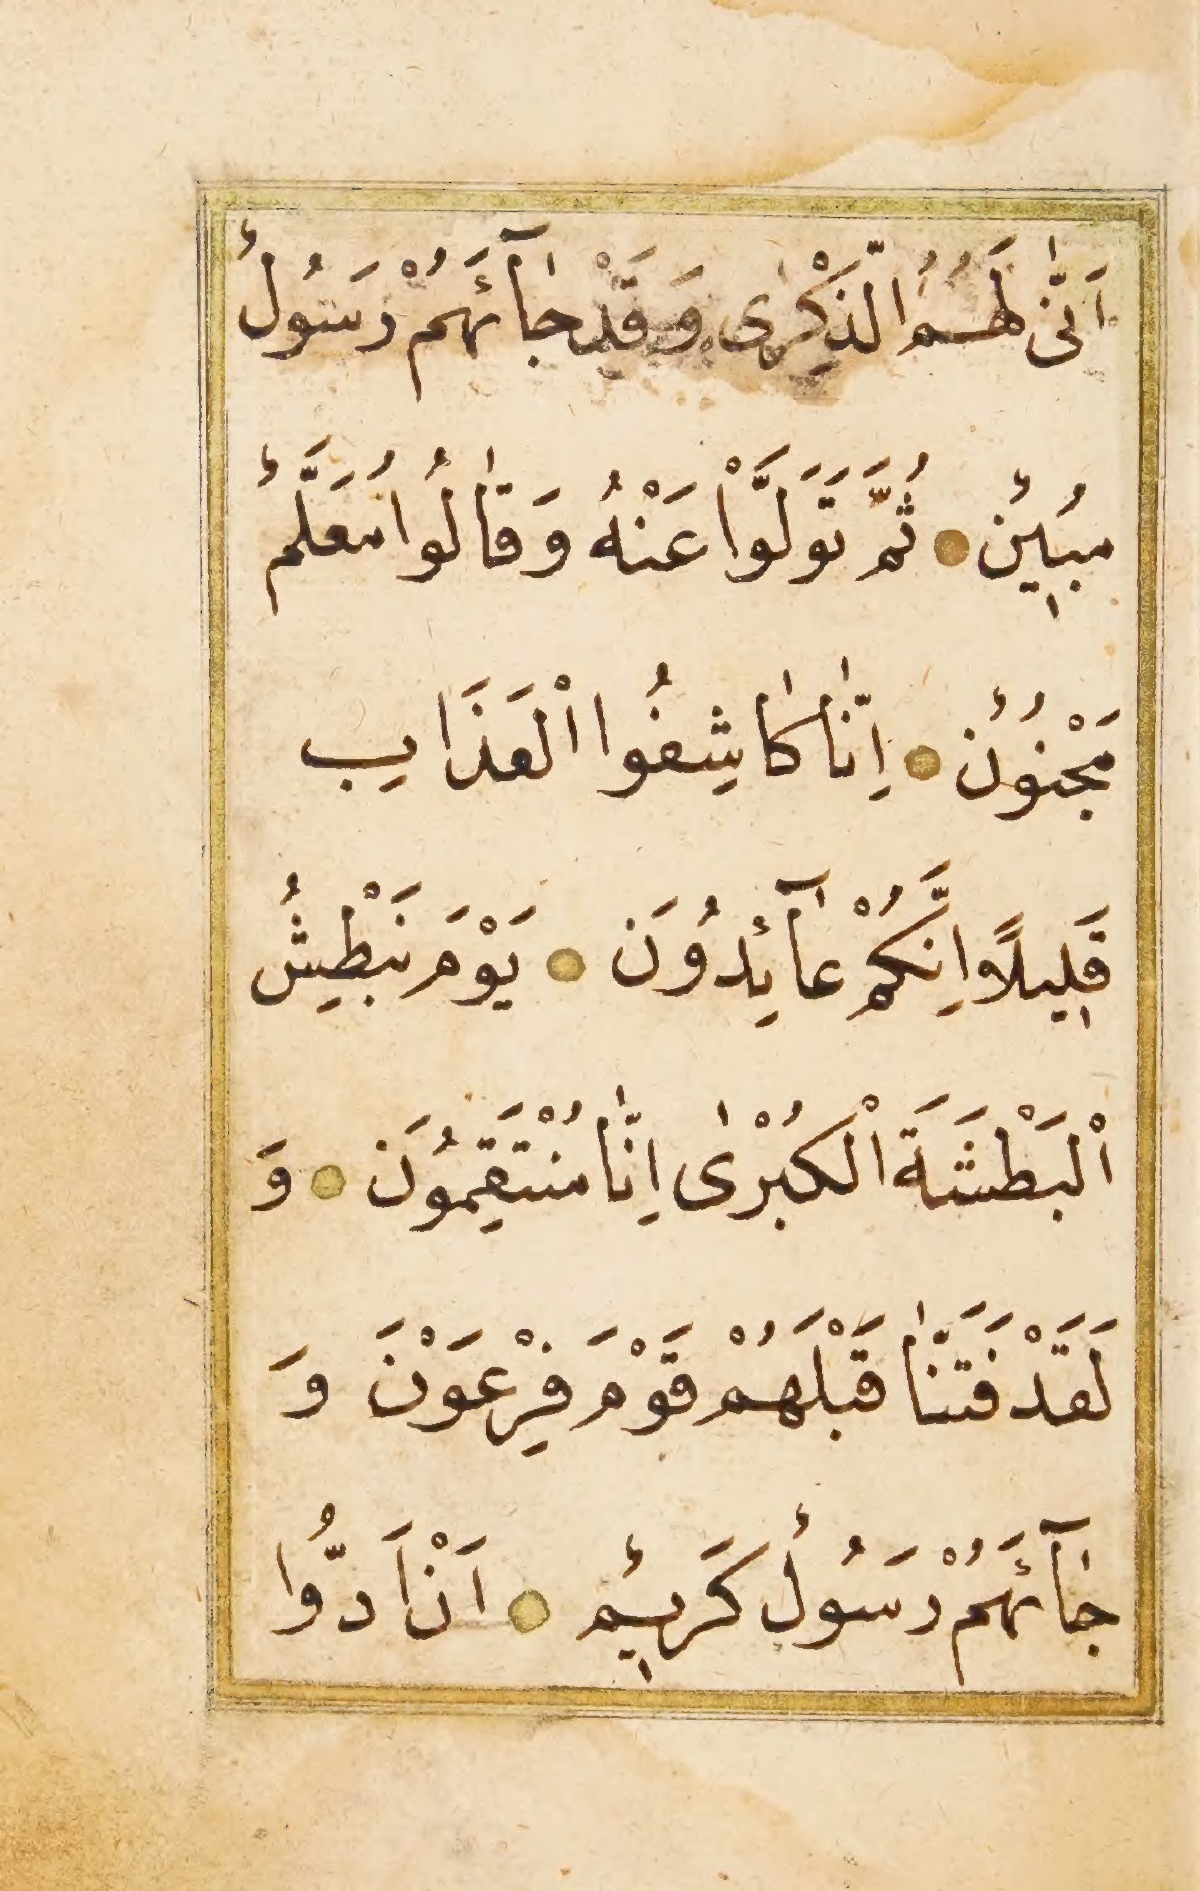 اَنّٰى لَهُمُ الذِّكْرٰى وَقَدْ جٰٓائَهُمْ رَسُولٌ
مُبٖينٌ ثُمَّ تَوَلَّوْا عَنْهُ وَقٰالُوا مُعَلَّمٌ
مَجْنُونٌ اِنّٰا كٰاشِفُوا الْعَذَابِ
قَلٖيلًا اِنَّكُمْ عٰٓائِدُونَ يَوْمَ نَبْطِشُ
الْبَطْشَةَ الْكُبْرٰى اِنّٰا مُنْتَقِمُونَ وَ
لَقَدْ فَتَنّٰا قَبْلَهُمْ قَوْمَ فِرْعَوْنَ وَ
جٰٓائَهُمْ رَسُولٌ كَرٖيمٌ اَنْ اَدُّوا